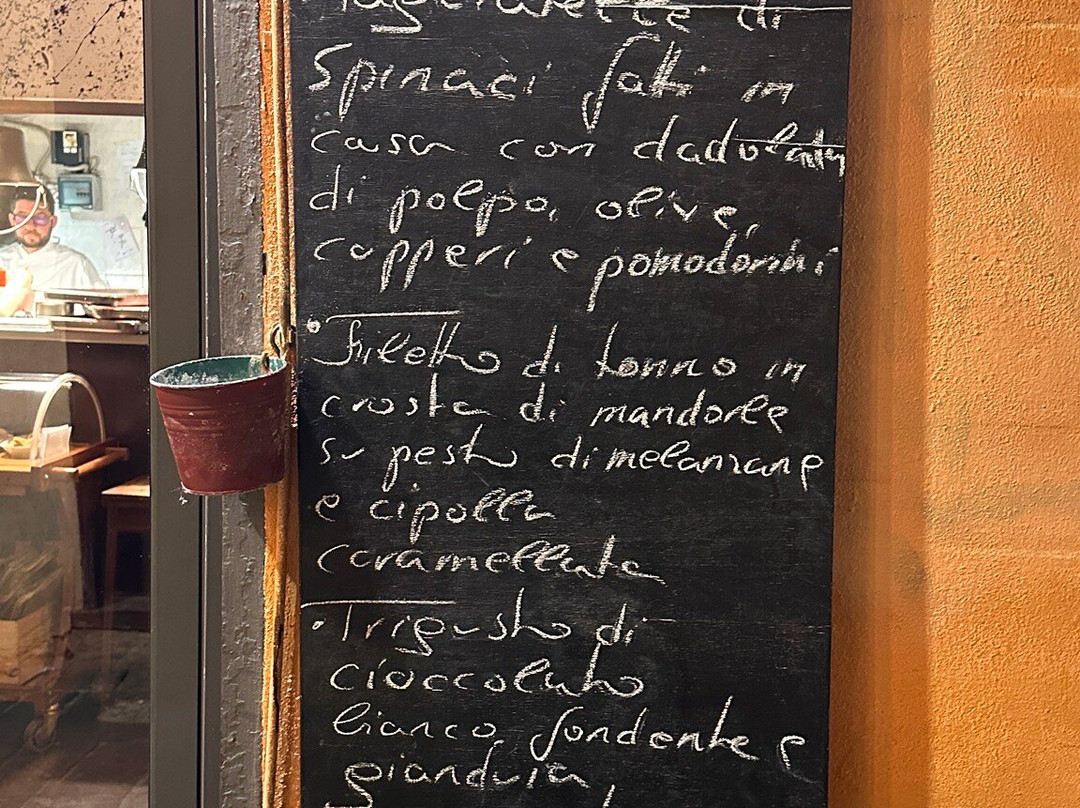 Tagliatelle di
Spinaci fatti in
casa con dadolata
di polpo, olive,
capperi e pomodorini
• Filetto di tonno in
crosta di mandorle
su pesto di melanzane
e cipolla
caramellata
• Trigusto di
cioccolato
bianco, fondente e
gianduia